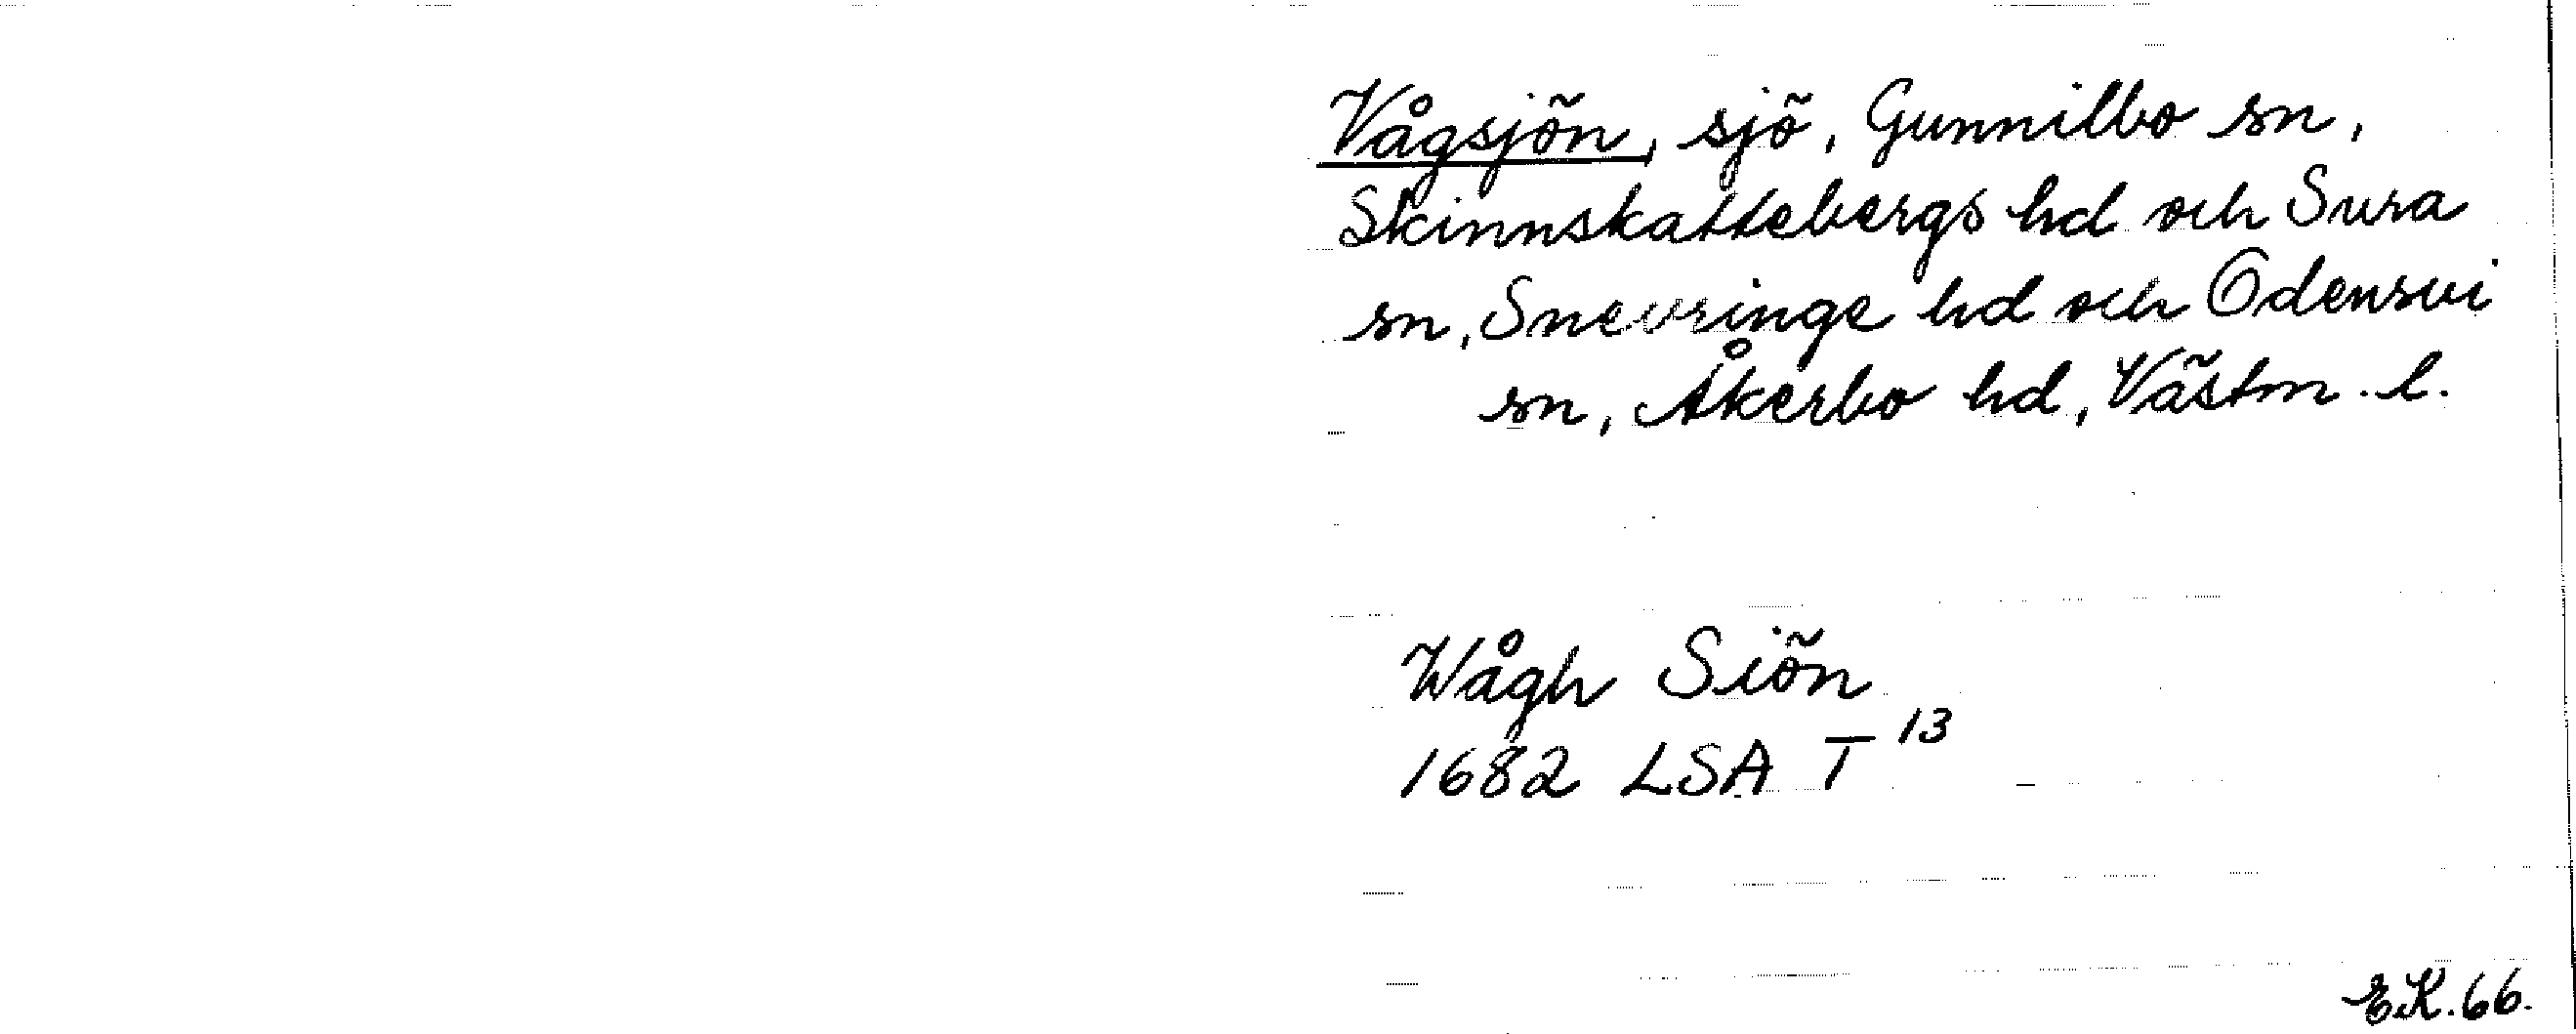 Vågsjön, sjö, Gunnilbo sn,
Skinnskattebergs hd och Sura
sn, Snevringe hd och Odensvi
sn, Åkerbo hd, Västm. l.
Wågh Siön
1682 LSA T 13
EK. 66.